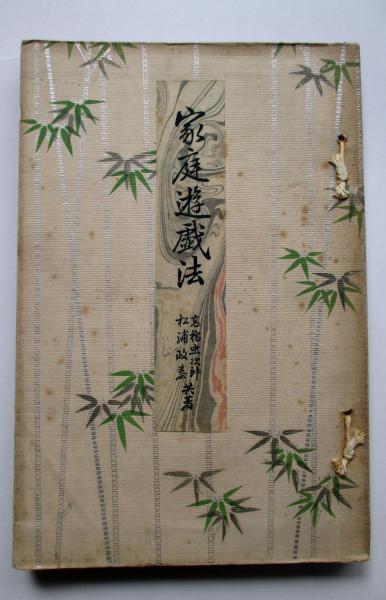 家庭遊戯法
高橋忠次郎
松浦政泰 共著